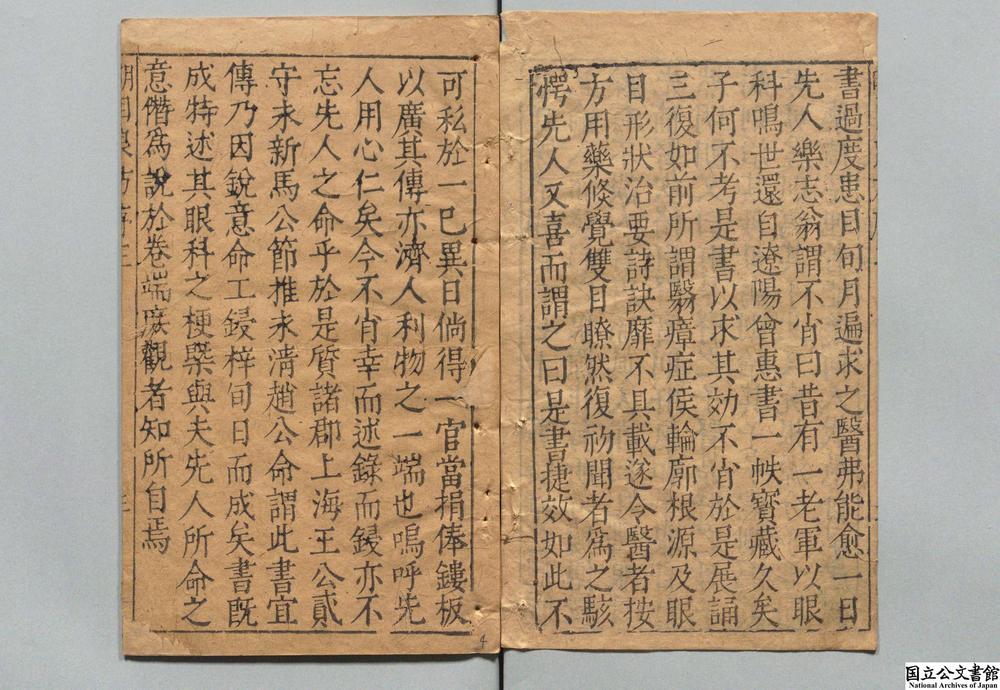 書過度患目旬月遍求之醫弗能愈一日
先人樂志翁謂不肖曰昔有一老軍以眼
科鳴世還自遼陽曾惠書一帙寶藏久矣
子何不考是書以求其効不肖於是展誦
三復如前所謂翳瘴症侯輪廓根源及眼
目形狀治要詩訣靡不具載遂令醫者按
方用藥倐覺雙目瞭然復初聞者爲之駭
愕先人又喜而謂之曰是書捷效如此不
可私於一己異日倘得一官當捐俸鏤板
以廣其傳亦濟人利物之一端也嗚呼先
人用心仁矣今不肖幸而述錄而鋟亦不
忘先人之命乎於是質諸郡上海王公貳
守未新馬公節推未清趙公命謂此書宜
傳乃因銳意命工鋟梓旬日而成矣書旣
成特述其眼科之梗槩與夫先人所命之
意僭爲說於卷端庶觀者知所自焉
4
国立公文書館
National Archives of Japan